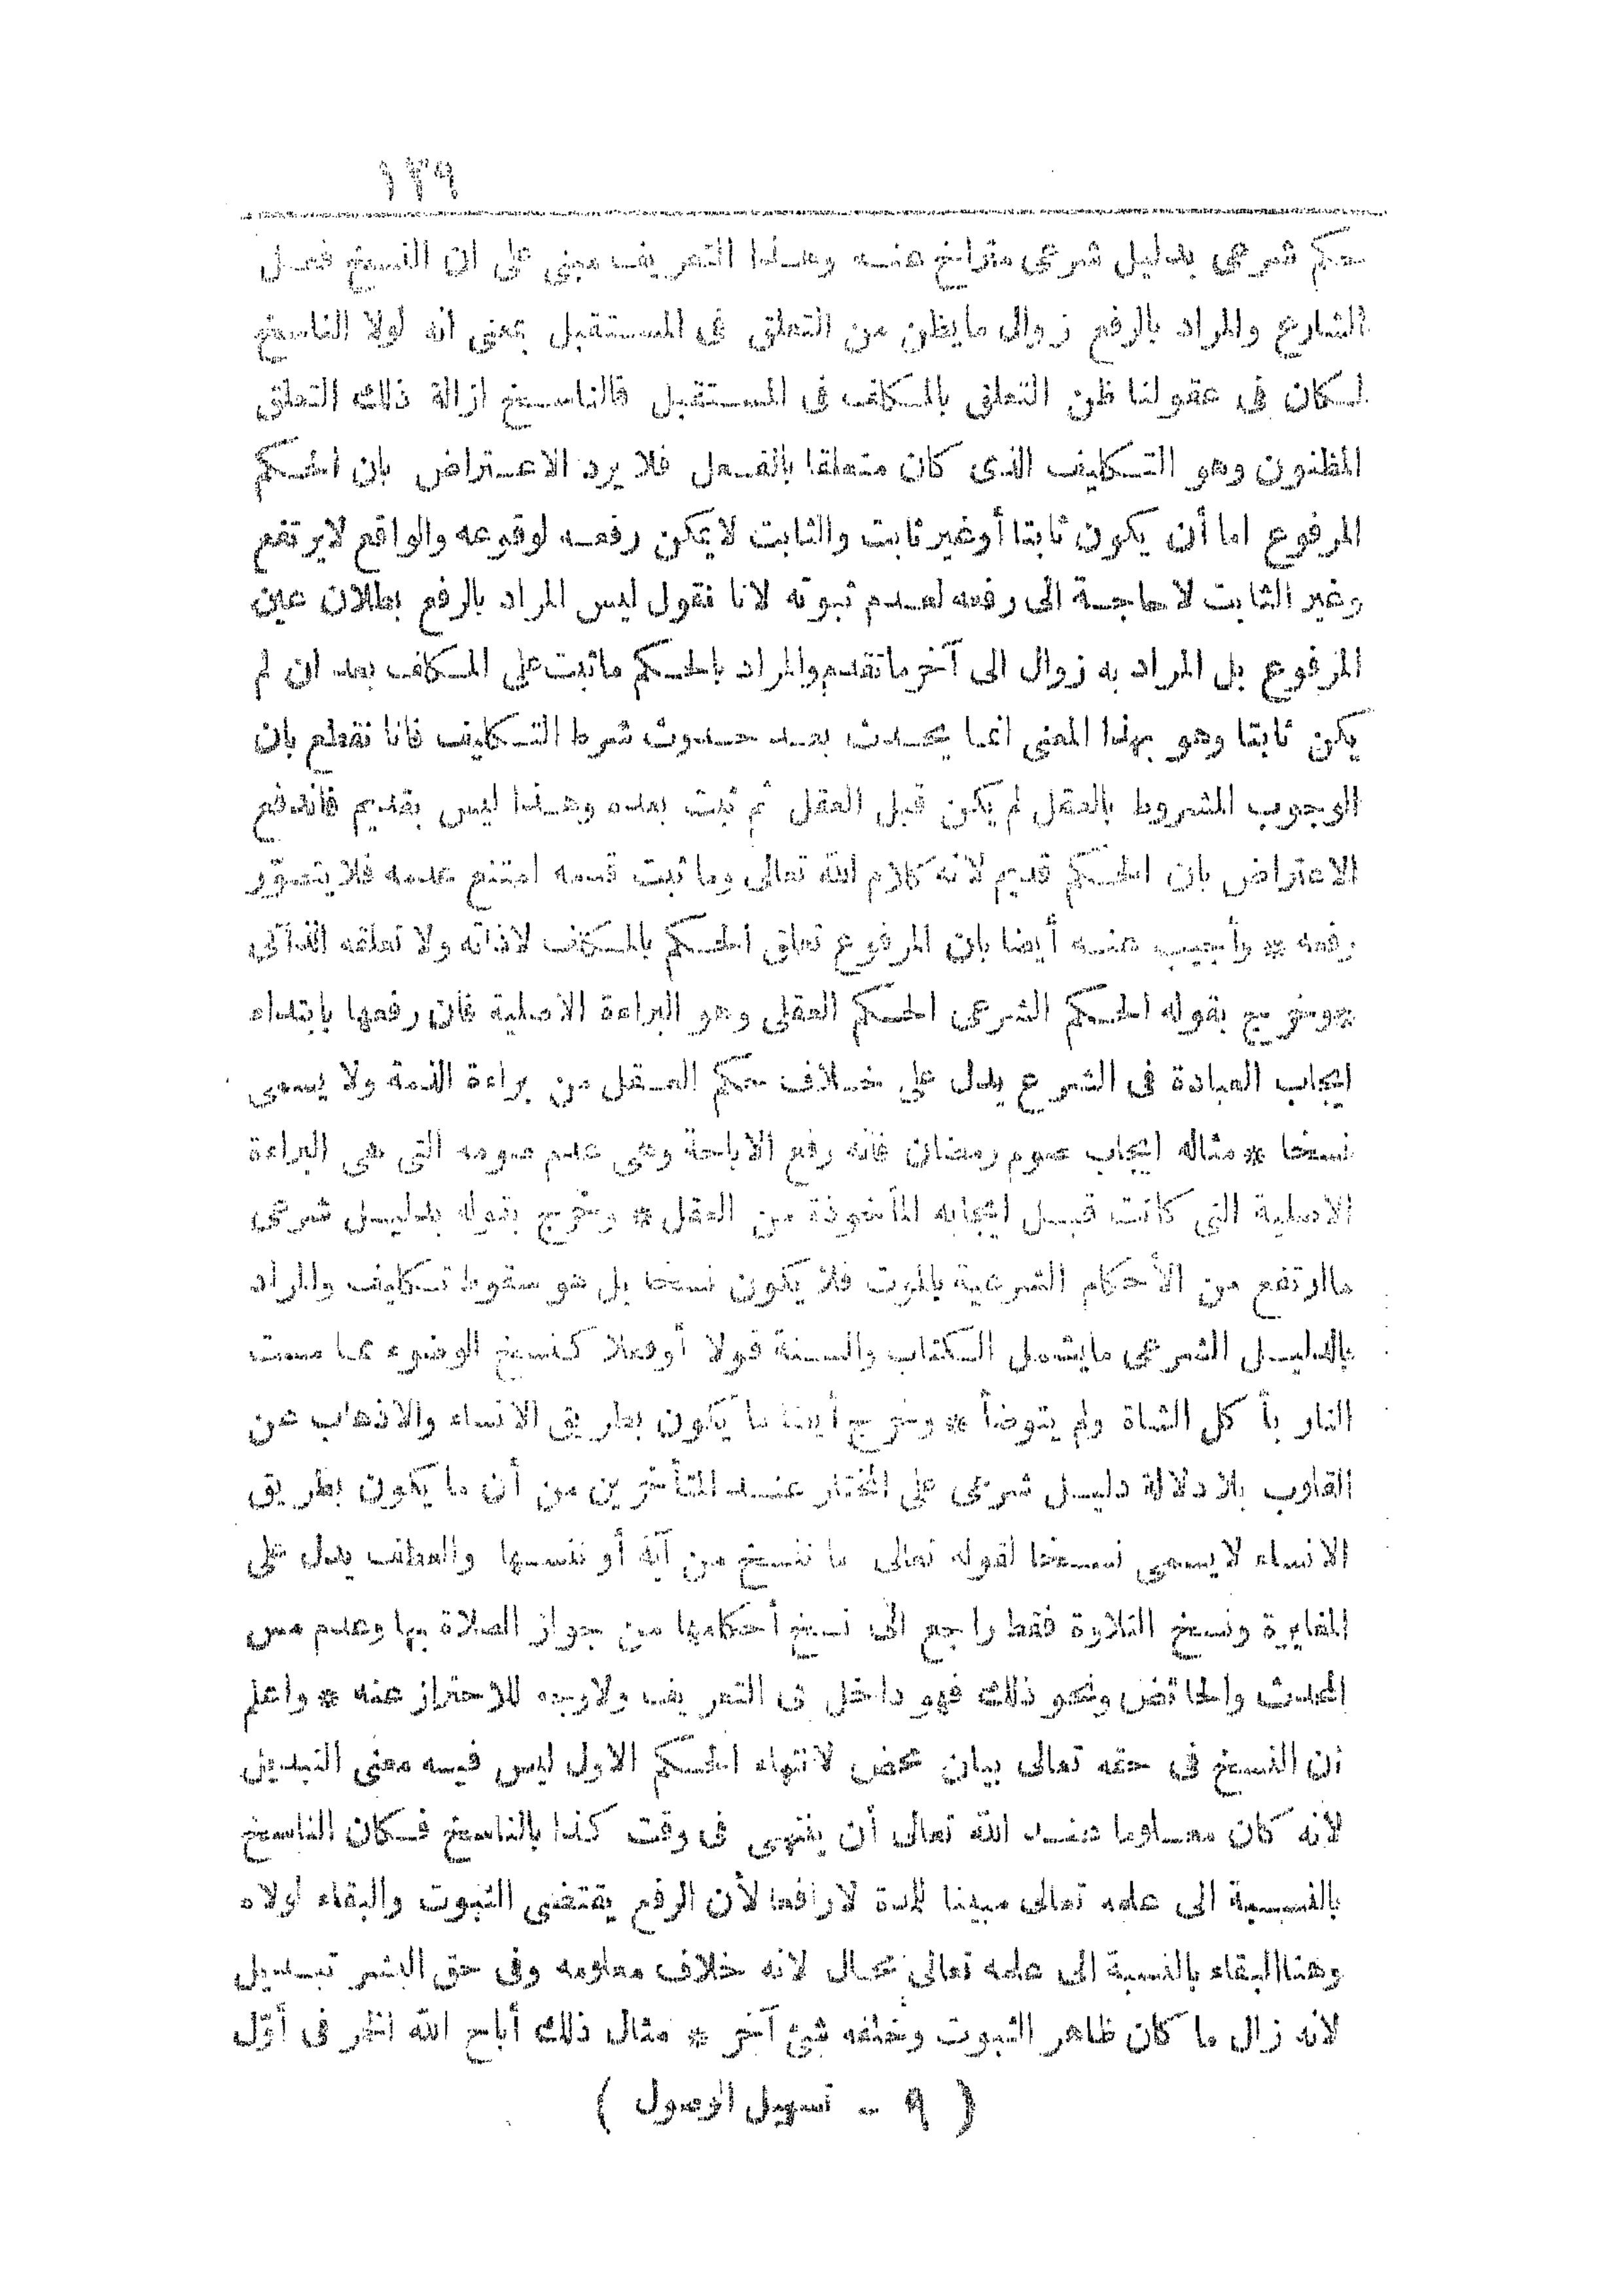 ١٢٩
حكم شرعى بدليل شرعى متراخ عنه وهذا التعريف مبنى على ان النسخ فعل
الشارع والمراد بالرفع زوال مايظن من التعلق فى المستقبل بمعنى انه لولا الناسخ
لكان فى عقولنا ظن التعلق بالمكلف فى المستقبل فالناسخ ازالة ذلك التعلق
المظنون وهو التكليف الذى كان متعلقا بالفعل فلا يرد الاعتراض بان الحكم
المرفوع اما أن يكون ثابتا أوغير ثابت والثابت لايمكن رفعه لوقوعه والواقع لايرتفع
وغير الثابت لا حاجة الى رفعه لعدم ثبوته لانا نقول ليس المراد بالرفع بطلان عين
المرفوع بل المراد به زوال الى آخر ماتقدم والمراد بالحكم ماثبت على المكلف بعد ان لم
يكن ثابتا وهو بهذا المعنى انما يحدث بعد حدوث شرط التكليف فانا نقطع بان
الوجوب المشروط بالعقل لم يكن قبل العقل ثم ثبت بعده وهذا ليس بقديم فاندفع
الاعتراض بان الحكم قديم لانه كلام الله تعالى وما ثبت قدمه امتنع عدمه فلا يتصوّر
رفعه * وأجيب عنه أيضا بان المرفوع تعلق الحكم بالمكلف لاذاته ولا تعلقه الذاتى
* وخرج بقوله الحكم الشرعى الحكم العقلى وهو البراءة الاصلية فان رفعها بابتداء
ايجاب العبادة فى الشرع يدل على خلاف حكم العقل من براءة الذمة ولا يسمى
نسخا * مثاله ايجاب صوم رمضان فانه رفع الاباحة وهى عدم صومه التى هى البراءة
الاصلية التى كانت قبل ايجابه المأخوذة من العقل * وخرج بقوله بدليل شرعى
ماارتفع من الأحكام الشرعية بالموت فلا يكون نسخا بل هو سقوط تكليف والمراد
بالدليل الشرعى مايشمل الكتاب والسنة قولا أوفعلا كنسخ الوضوء مما مست
النار بأ كل الشاة ولم يتوضأ * وخرج أيضا ما يكون بطريق الانساء والاذهاب عن
القلوب بلا دلالة دليل شرعى على المختار عند المتأخرين من أن ما يكون بطريق
الانساء لا يسمى نسخا لقوله تعالى ما ننسخ من آية أو ننسها والعطف يدل على
المغايرة ونسخ التلاوة فقط راجع الى نسخ أحكامها من جواز الصلاة بها وعدم مس
المحدث والحائض ونحو ذلك فهو داخل فى التعريف ولاوجه للاحتراز عنه * واعلم
أن النسخ فى حقه تعالى بيان محض لانتهاء الحكم الاول ليس فيه معنى التبديل
لأنه كان معلوما عند الله تعالى أن ينتهى فى وقت كذا بالناسخ فكان الناسخ
بالنسبة الى علمه تعالى مبينا للمدة لارافعا لأن الرفع يقتضى الثبوت والبقاء لولاه
وهنا البقاء بالنسبة الى علمه تعالى محال لانه خلاف معلومه وفى حق البشر تبديل
لانه زال ما كان ظاهر الثبوت وخلفه شئ آخر * مثال ذلك أباح الله الخمر فى أوّل
( ٩ - تسهيل الوصول )